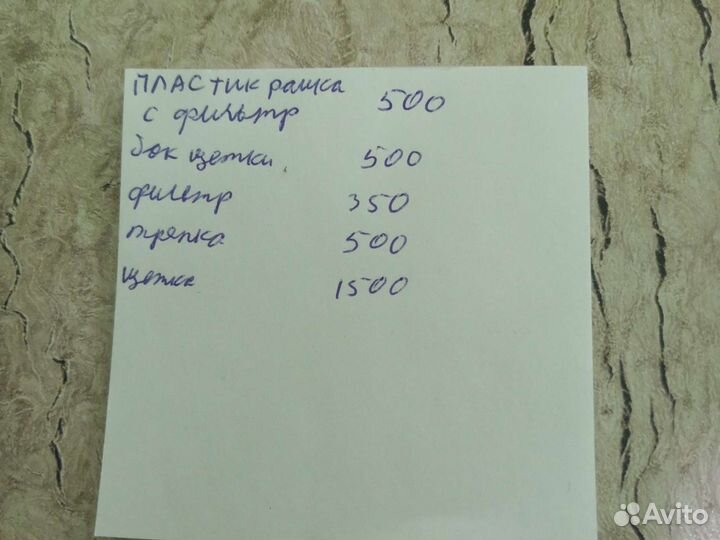 ПЛАСТИК рамка
с фильтр 500
бок щетки 500
фильтр 350
тряпка 500
щетка 1500
Avito